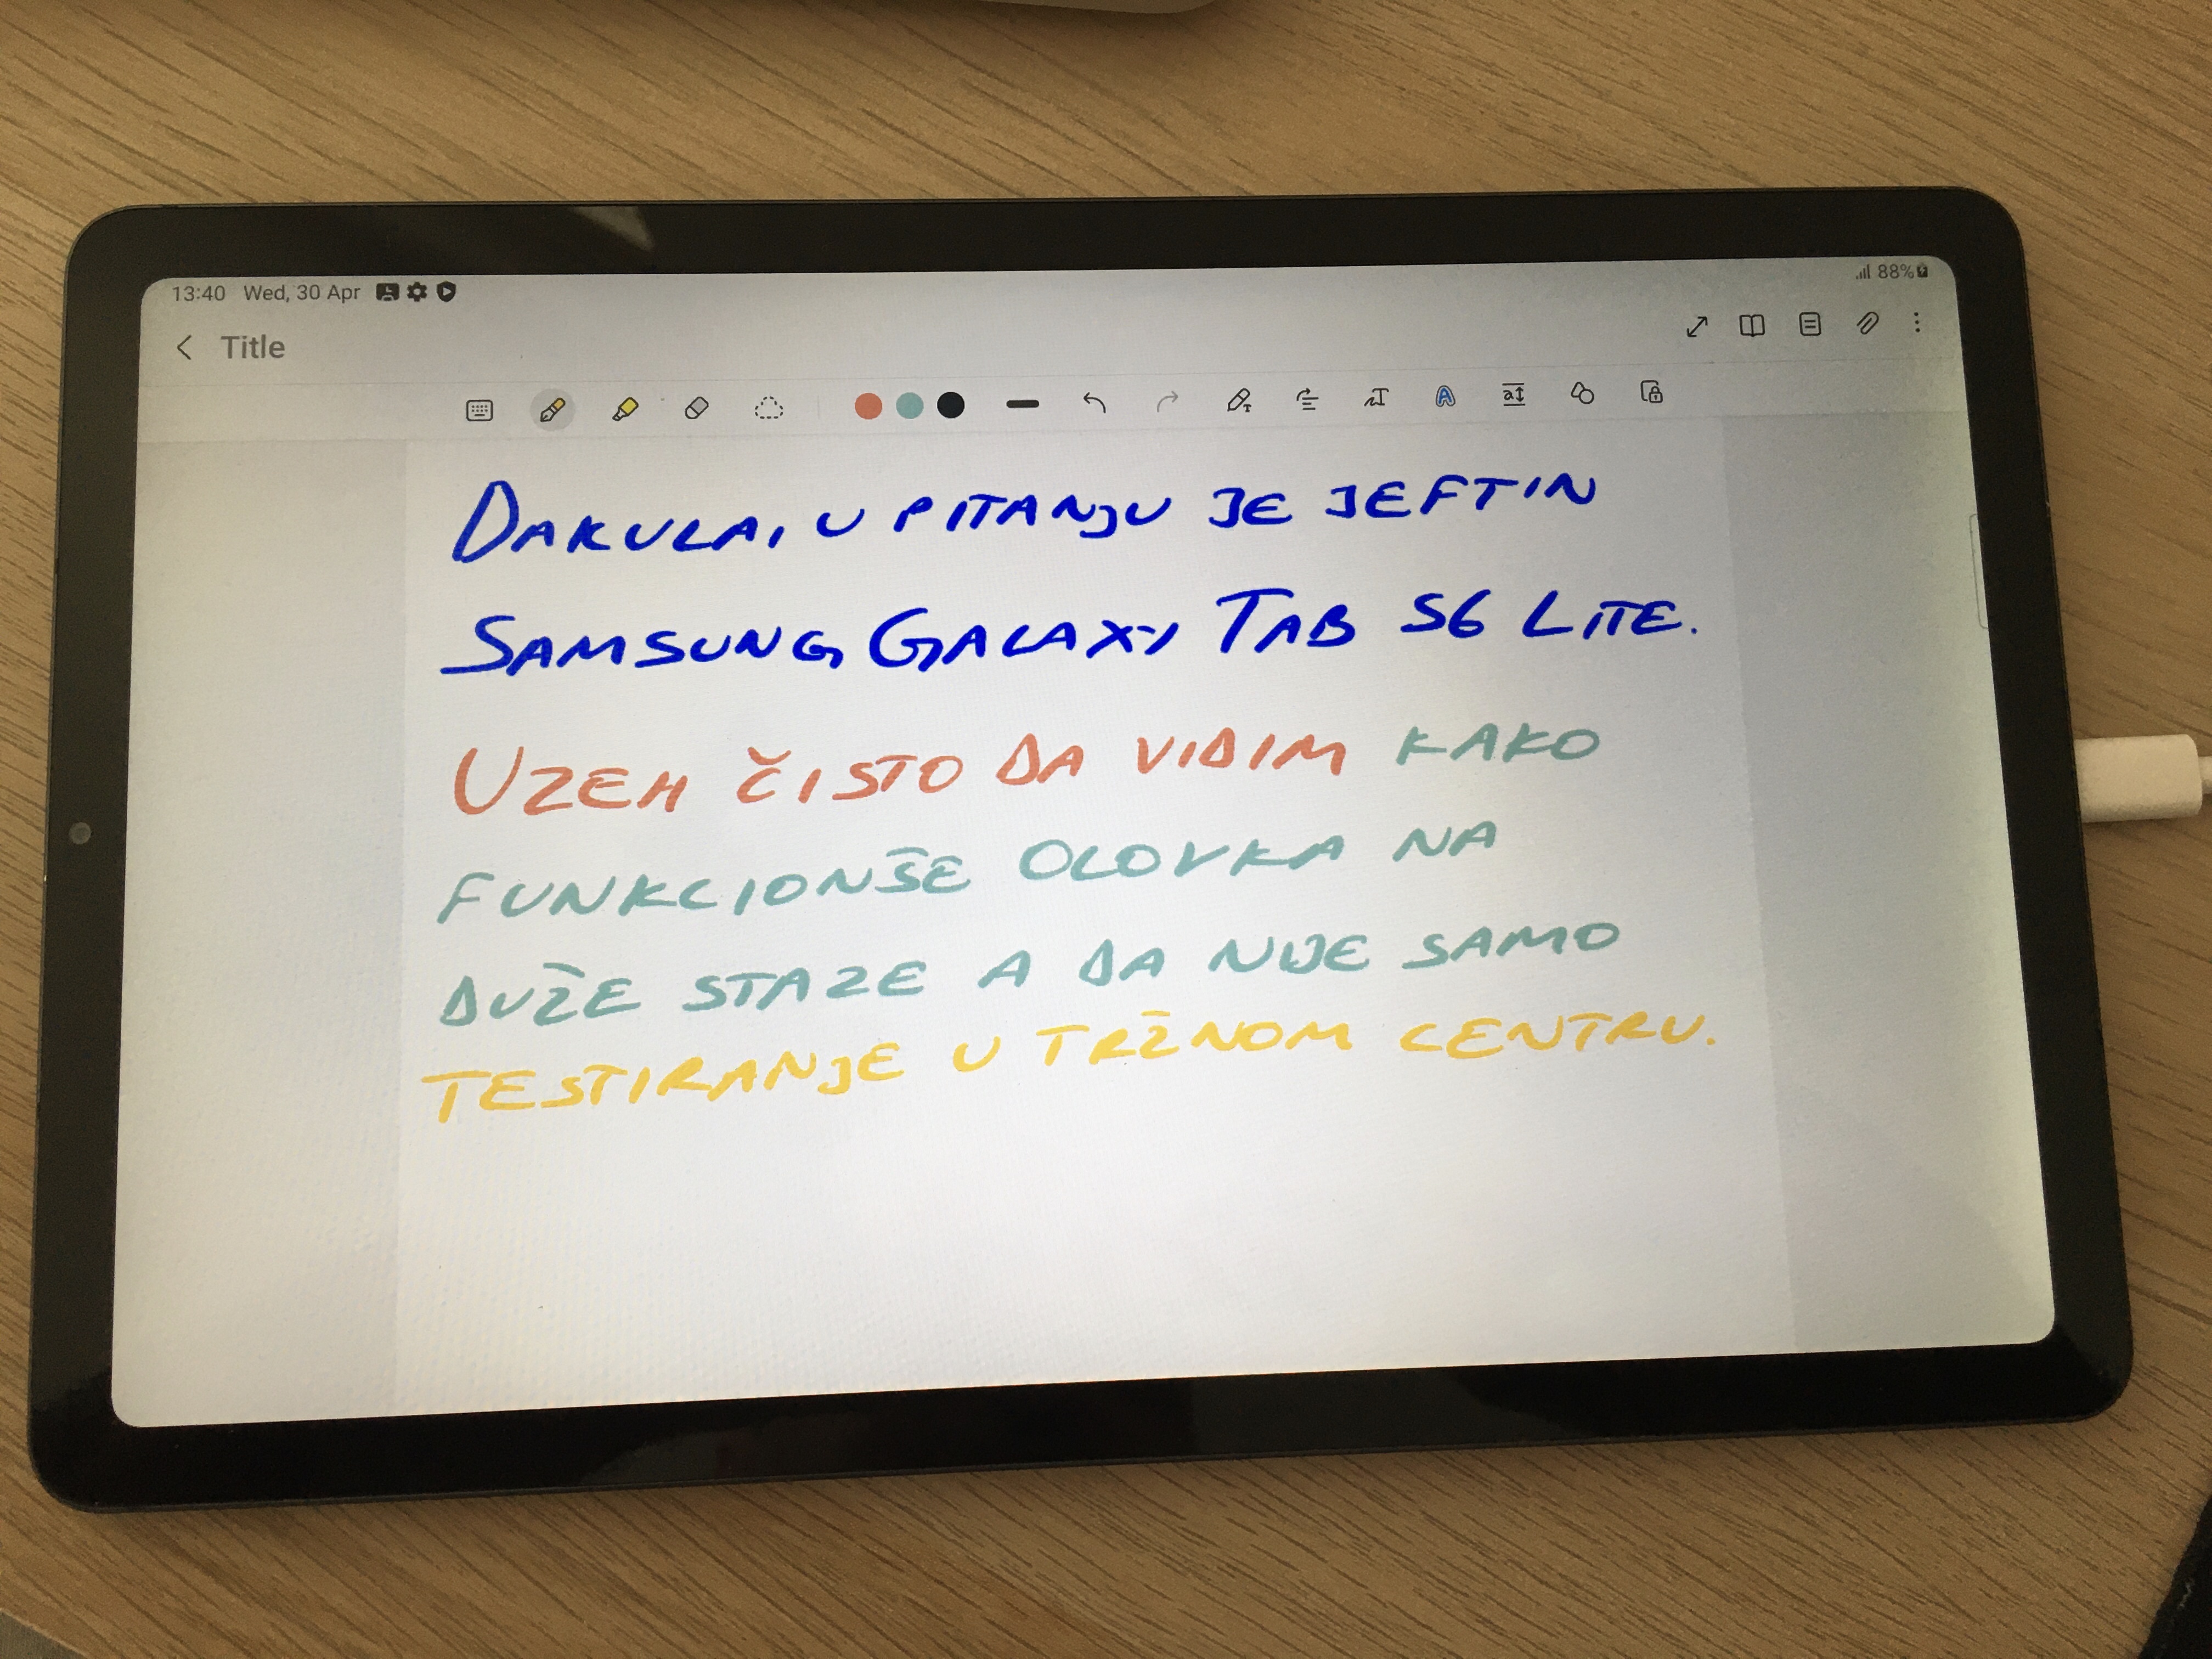 13:40 Wed, 30 Apr 88%
Title
DAKULA, U PITANJU JE JEFTIN
SAMSUNG GALAXY TAB S6 LITE.
UZEH ČISTO DA VIDIM KAKO
FUNKCIONŠE OLOVKA NA
DUŽE STAZE A DA NIJE SAMO
TESTIRANJE U TRŽNOM CENTRU.